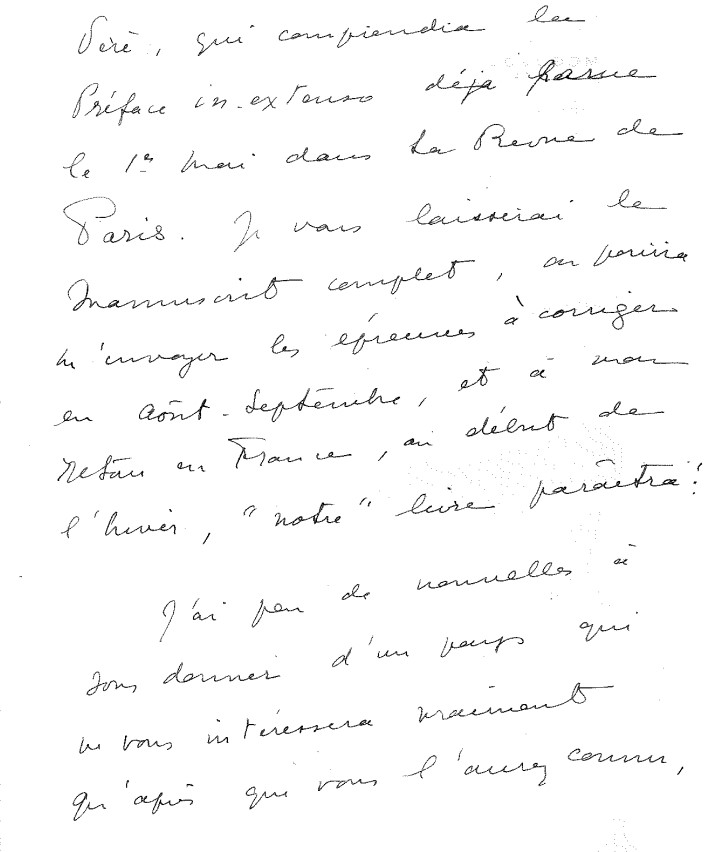 Véré, qui comprendra la
Préface in-extenso déjà parue
le 1er mai dans La Revue de
Paris. Je vous laisserai le
manuscrit complet, on pourra
m'envoyer les épreuves à corriger
en Août-Septembre, et à mon
retour en France, au début de
l'hiver, "notre" livre paraîtra!
J'ai peu de nouvelles à
vous donner d'un pays qui
ne vous intéressera vraiment
qu'après que vous l'aurez connu,